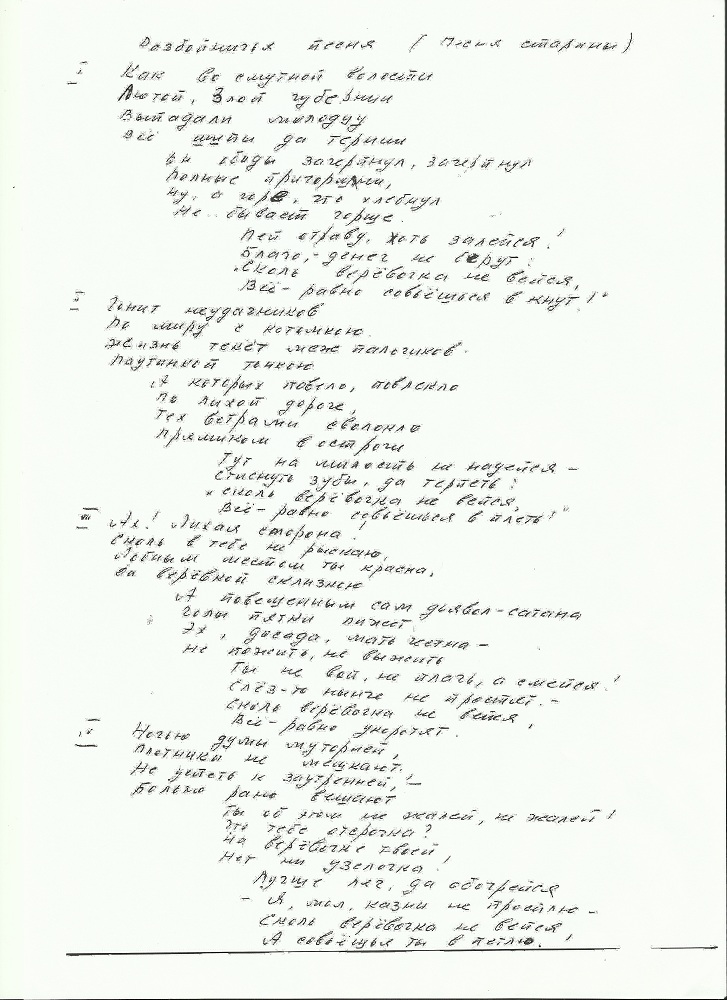 Разбойничья песня (Песня старины)
I Как во смутной волости
Лютой, Злой губернии
Выпадали молодцу
Всё шипы да тернии
Он обиды зачерпнул, зачерпнул
Полные пригоршни,
Ну, а горе, что хлебнул
Не бывает горше.
Пей отраву, хоть залейся!
Благо, - денег не берут.
"Сколь верёвочка не вейся,
Всё - равно совьёшься в кнут!"
II Гонит неудачников
По миру с котомкою.
Жизнь текёт меж пальчиков
Паутинкой тонкою
А которых повело, повлекло
По лихой дороге,
Тех ветрами сволокло
Прямиком в остроги
Тут на милость не надейся -
Стиснуть зубы, да терпеть!
"Сколь верёвочка не вейся,
Всё - равно совьёшься в плеть!"
III Ах! Лихая сторона!
Сколь в тебе не рыскаю,
Лобным местом ты красна,
Да верёвкой склизкою
А повешенным сам дьявол-сатана
Голы пятки лижет
Эх, досада, мать честна -
Не пожить, не выжить
Ты не вой, не плачь, а смейся!
Слёз-то нынче не простят. -
Сколь верёвочка не вейся,
Всё - равно укоротят.
IV Ночью думы муторней,
Плотники не мешкают.
Не успеть к заутренней, -
Больно рано вешают
Ты об этом не жалей, не жалей!
Что тебе отсрочка?
На верёвочке твоей
Нет ни узелочка!
Лучше ляг, да обогрейся
- Я, мол, казни не просплю -
Сколь верёвочка не вейся
А совьёшься ты в петлю.!